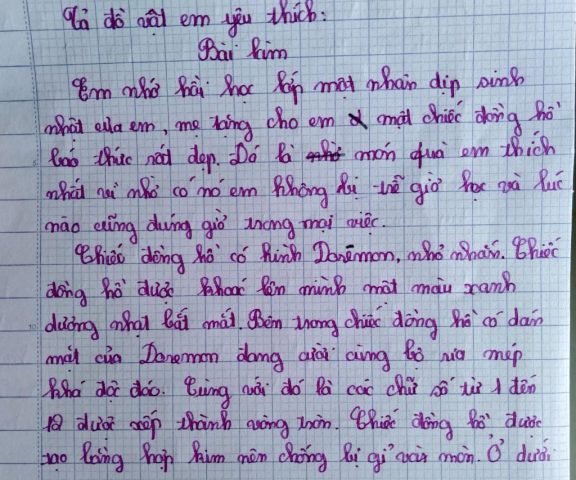 Tả đồ vật em yêu thích:
Bài làm
Em nhớ hồi học lớp một nhân dịp sinh
nhật của em, mẹ tặng cho em một chiếc đồng hồ
báo thức rất đẹp. Đó là món quà em thích
nhất vì nhờ có nó em không bị trễ giờ học và lúc
nào cũng đúng giờ trong mọi việc.
Chiếc đồng hồ có hình Dorêmon, nhỏ nhắn. Chiếc
đồng hồ được khoác lên mình một màu xanh
dương nhạt bắt mắt. Bên trong chiếc đồng hồ có dán
mặt của Doremon đang cười cùng bộ ria mép
khá độc đáo. Cùng với đó là các chữ số từ 1 đến
12 được xếp thành vòng tròn. Chiếc đồng hồ được
tạo bằng hợp kim nên chống bị gỉ và mòn. Ở dưới